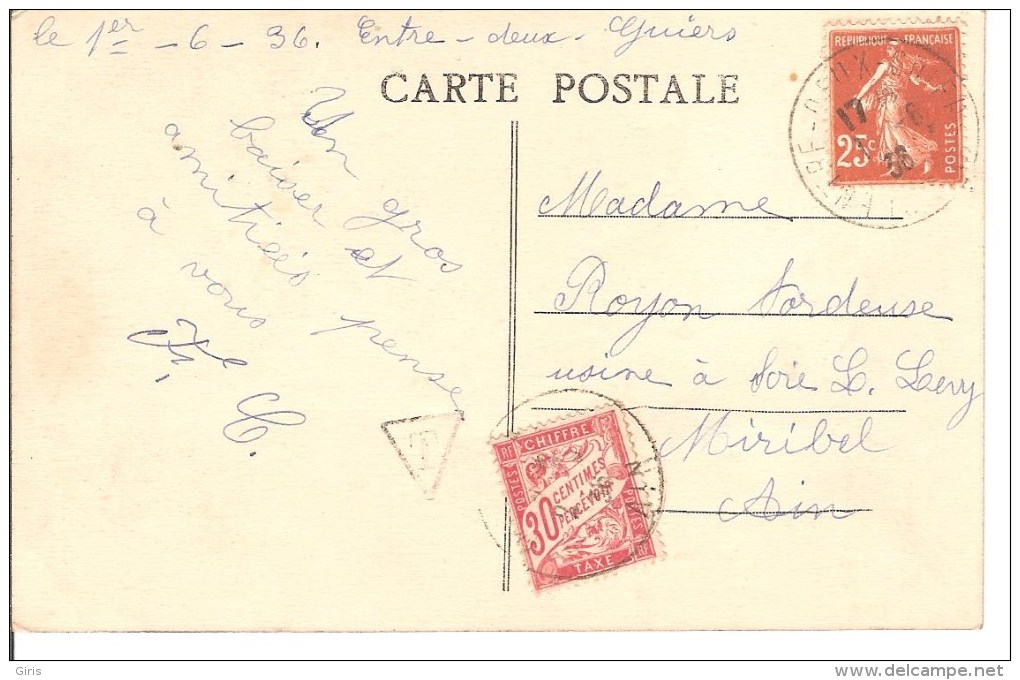 le 1er - 6 - 36. Entre-deux-Guiers
CARTE POSTALE
REPUBLIQUE FRANÇAISE
25c
POSTES
17
1 -6
36
Un gros
baiser et
amitiés pense
à vous
Madame
Royon Tordeuse
usine à Soie L. Levy
Miribel
Ain
T
RF CHIFFRE
POSTES
30 CENTIMES
A
PERCEVOIR
POSTES
TAXE RF
AIN
Giris
delcampe.net